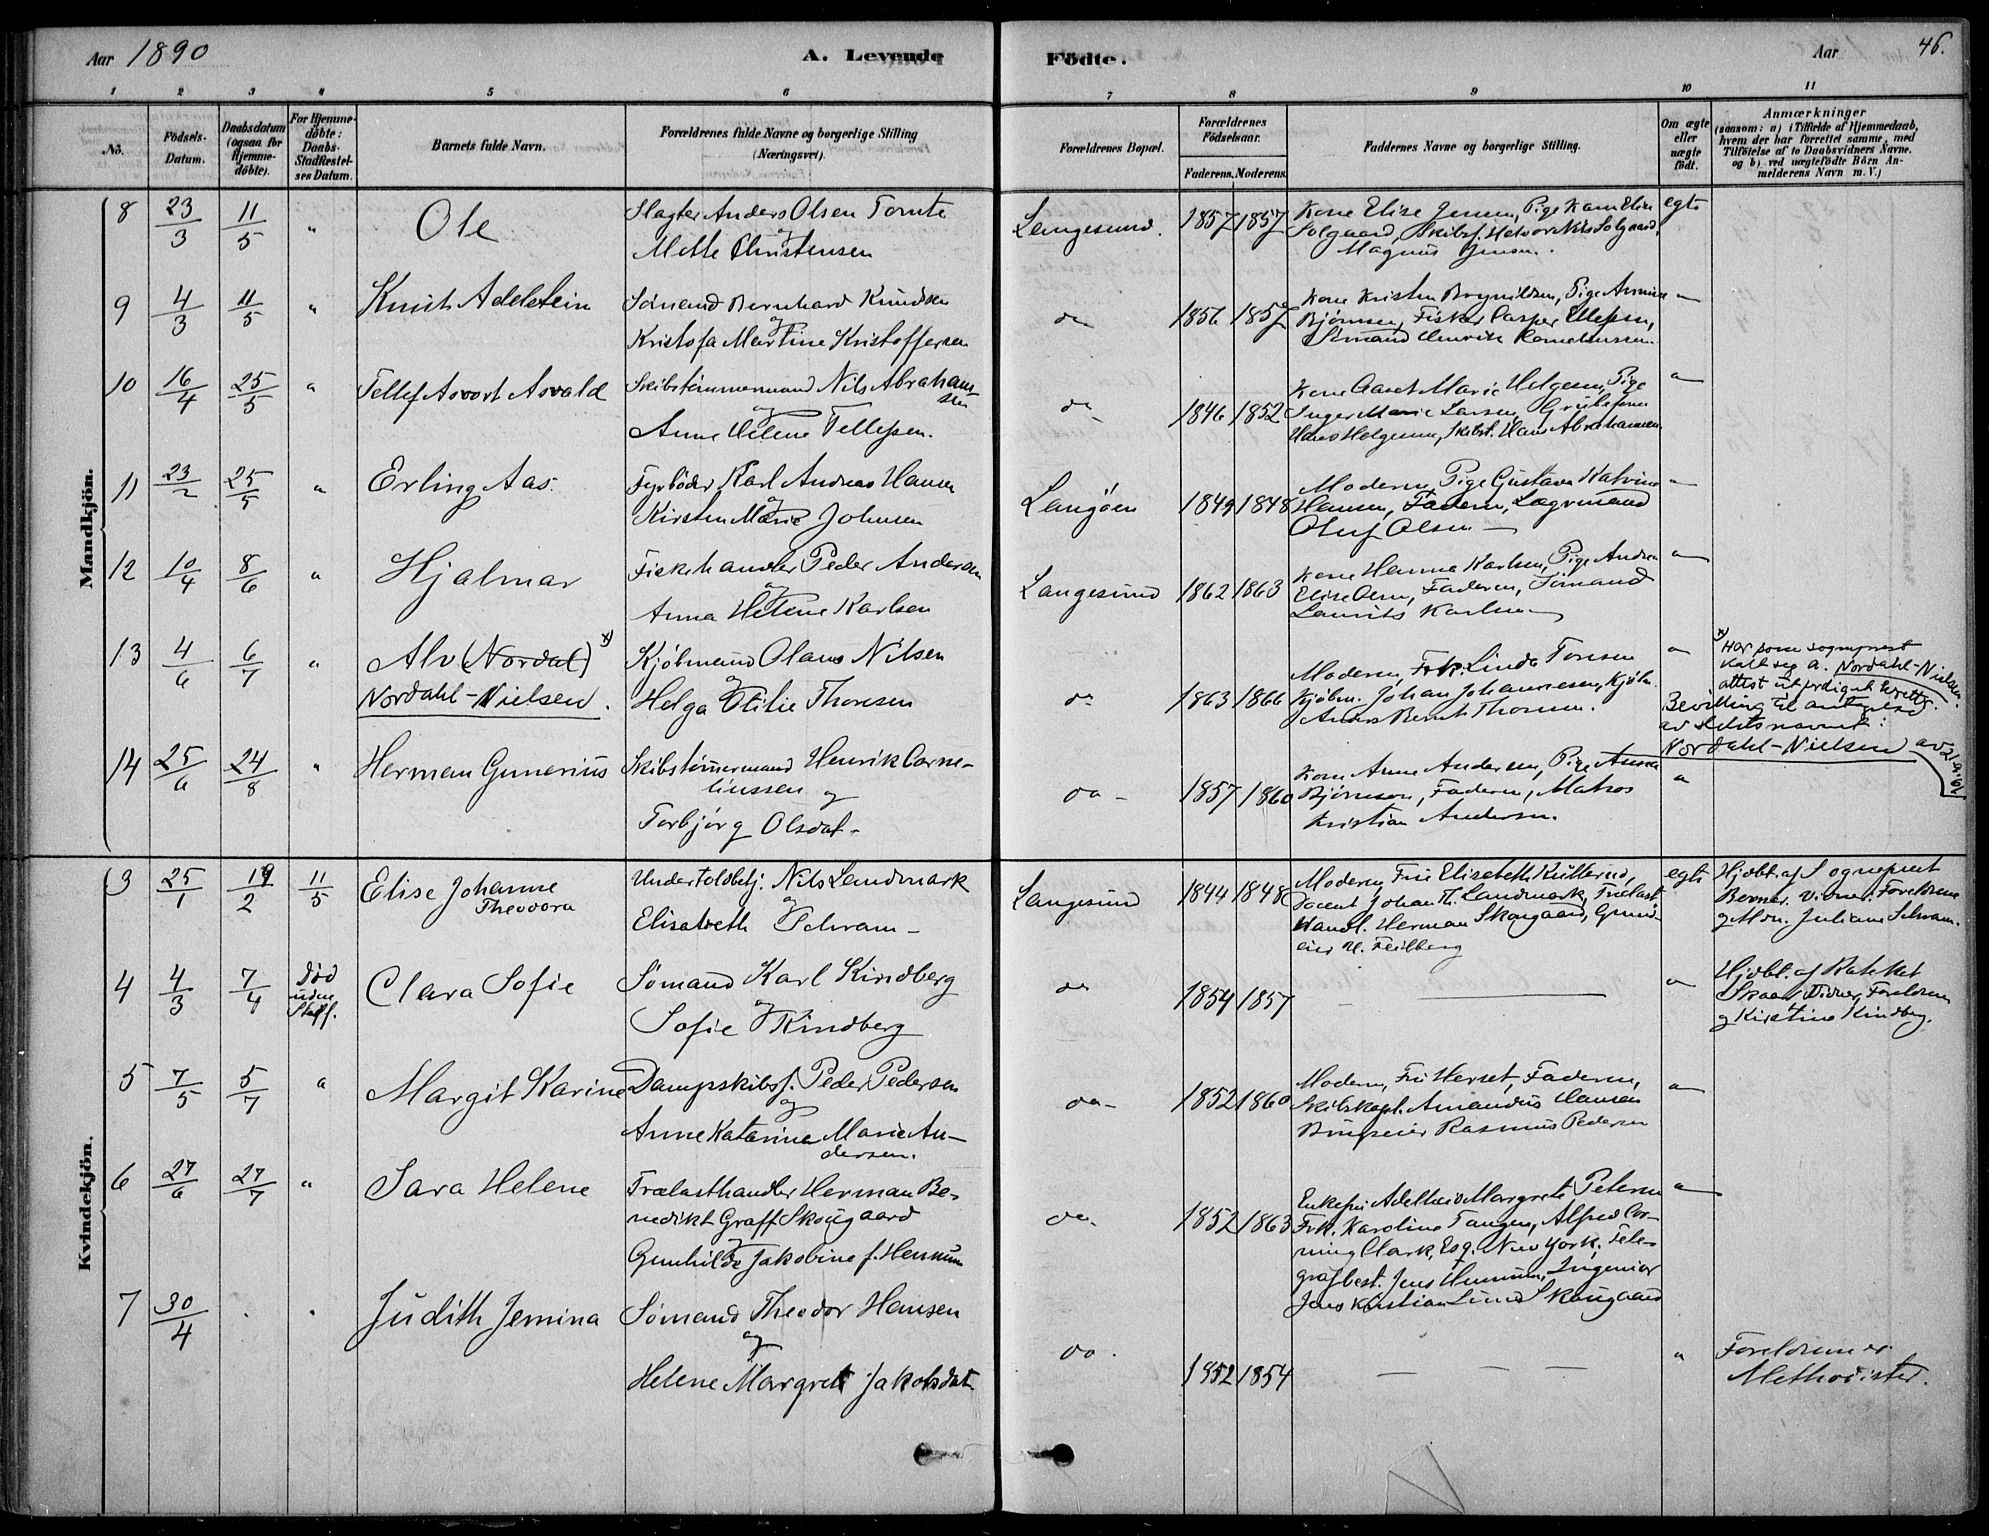 Aar 1890
A. Levende
Födte.
Aar
46.
1 2 3 4 5 6 7 8 9 10 11
No.
Födsels-Datum.
Daabsdatum (ogsaa for Hjemmedöbte).
For Hjemmedöbte: Daabs-Stadfæstelses Datum.
Barnets fulde Navn.
Forældrenes fulde Navne og borgerlige Stilling (Næringsvei).
Forældrenes Bopæl.
Forældrenes Födselsaar.
Faderens. Moderens.
Faddernes Navne og borgerlige Stilling.
Om ægte eller uægte födt.
Anmærkninger
(saasom: a) i Tilfælde af Hjemmedaab,
hvem der har forrettet samme, med
Tilföielse af to Daabsvidners Navne,
og b) ved uægtefödte Börn Anmelderens Navn m. V.)
Mandkjön.
8 23/3 11/5 " Ole
Slagter Anders Olsen Tomte
og
Mette Christensen
Langesund. 1857 1857
Kone Elise Jensen, Pige Karen Elise
Solgaard, Skibsf. Halvor Nils Solgaard,
Magnus Jensen.
egte
9 4/3 11/5 " Knut Adelstein
Sömand Bernhard Knudsen
og
Kristofa Martine Kristoffersen
do 1856 1857
Kone Kristen Brynildsen, Pige
Björnsen, Fisker Casper Ellefsen,
Sömand Henrik Corneliussen.
"
10 16/4 25/5 " Tellef Asvort Asvald
Skibstömmermand Nils Abrahamsen
og
Anne Helene Tellefsen.
do 1846 1852
Kone Aaret Marie Helgesen, Pige
Inger Marie Larsen,
Hans Helgesen, Skibst. Hans Abrahamsen.
"
11 23/2 25/5 " Erling Aas.
Fyrböder Karl Andreas Hansen
og
Kirsten Marie Johnsen
Langöen 1849 1848
Moderen, Pige Gustava Katrine
Hansen, Faderen, Lægvmand
Oluf Olsen
"
12 10/4 8/6 " Hjalmar
Fiskehandler Peder Andersen
og
Anna Helene Karlsen
Langesund 1862 1863
Kone Hanna Karlsen, Pige Andrea
Elise Olsen, Faderen, Sömand
Laurits Karlsen
"
13 4/6 6/7 " Alv (Nordal) x)
Nordahl-Nielsen.
Kjöbmand Olaus Nilsen
og
Helga Otilie Thoresen
do 1863 1866
Moderen, Frk. Linda Toresen
Kjöbm. Johan Johannesen, Kjöbm.
Anders Bernt Thoresen.
"
x) Har som sogneprest
kalt seg A. Nordahl-Nielsen.
attest utferdiget
Bevilling til antagelse
av slektsnavnet:
Nordahl-Nielsen av 21.9.
14 25/6 24/8 " Herman Gunerius
Skibstömmermand Henrik Corneliussen og
Torbjörg Olsdat.
do 1857 1860
Kone Anne Andersen, Pige Anna
Björnsen, Faderen, Matros
Kristian Andersen.
"
Kvindekjön.
3 25/1 19/2 11/5 Elise Johanne
Theodora
Undertoldbetj. Nils Landmark
og
Elisabeth Schram
Langesund 1844 1848
Moderen, Fru Elisabeth
Docent Johan Th. Landmark, Trælast
Handl. Herman Skougaard, Grund-
eier H. Feilberg
egte
Hjdbt. af Sogneprest
Berner. Vidner: Forældrene
og Mdm. Juliane Schram.
4 4/3 7/4 Död uden Stadf. Clara Sofie
Sömand Karl Kindberg
og
Sofie Kindberg
do 1854 1857
"
Hjdbt. af Kateket
Skaar. Vidner, Forældrene
og Kirstine Kindberg.
5 7/5 5/7 " Margit Karine
Dampskibsf. Peder Pedersen
og
Anne Katarina Marie Andersen.
do 1852 1860
Moderen, Fru Herset, Faderen,
Skibskapt. Amandus Hansen
Brugseier Rasmus Pedersen
"
6 27/6 27/7 " Sara Helene
Trælasthandler Herman Benedikt Graff Skougaard
og
Gunhilde Jakobine f. Hennum
do 1852 1863
Enkefru Adelheid Margrete Petersen
Frk. Karoline Tangen, Alfred Corning Clark, Esq. New York, Telegrafbest. Jens Hennum, Ingeniör
Jens Kristian Lund Skougaard
"
7 30/4 . " Judith Jemina
Sömand Theodor Hansen
og
Helene Margret Jakobsdat.
do. 1852 1854
— —
"
Forældrene er
Methodister.